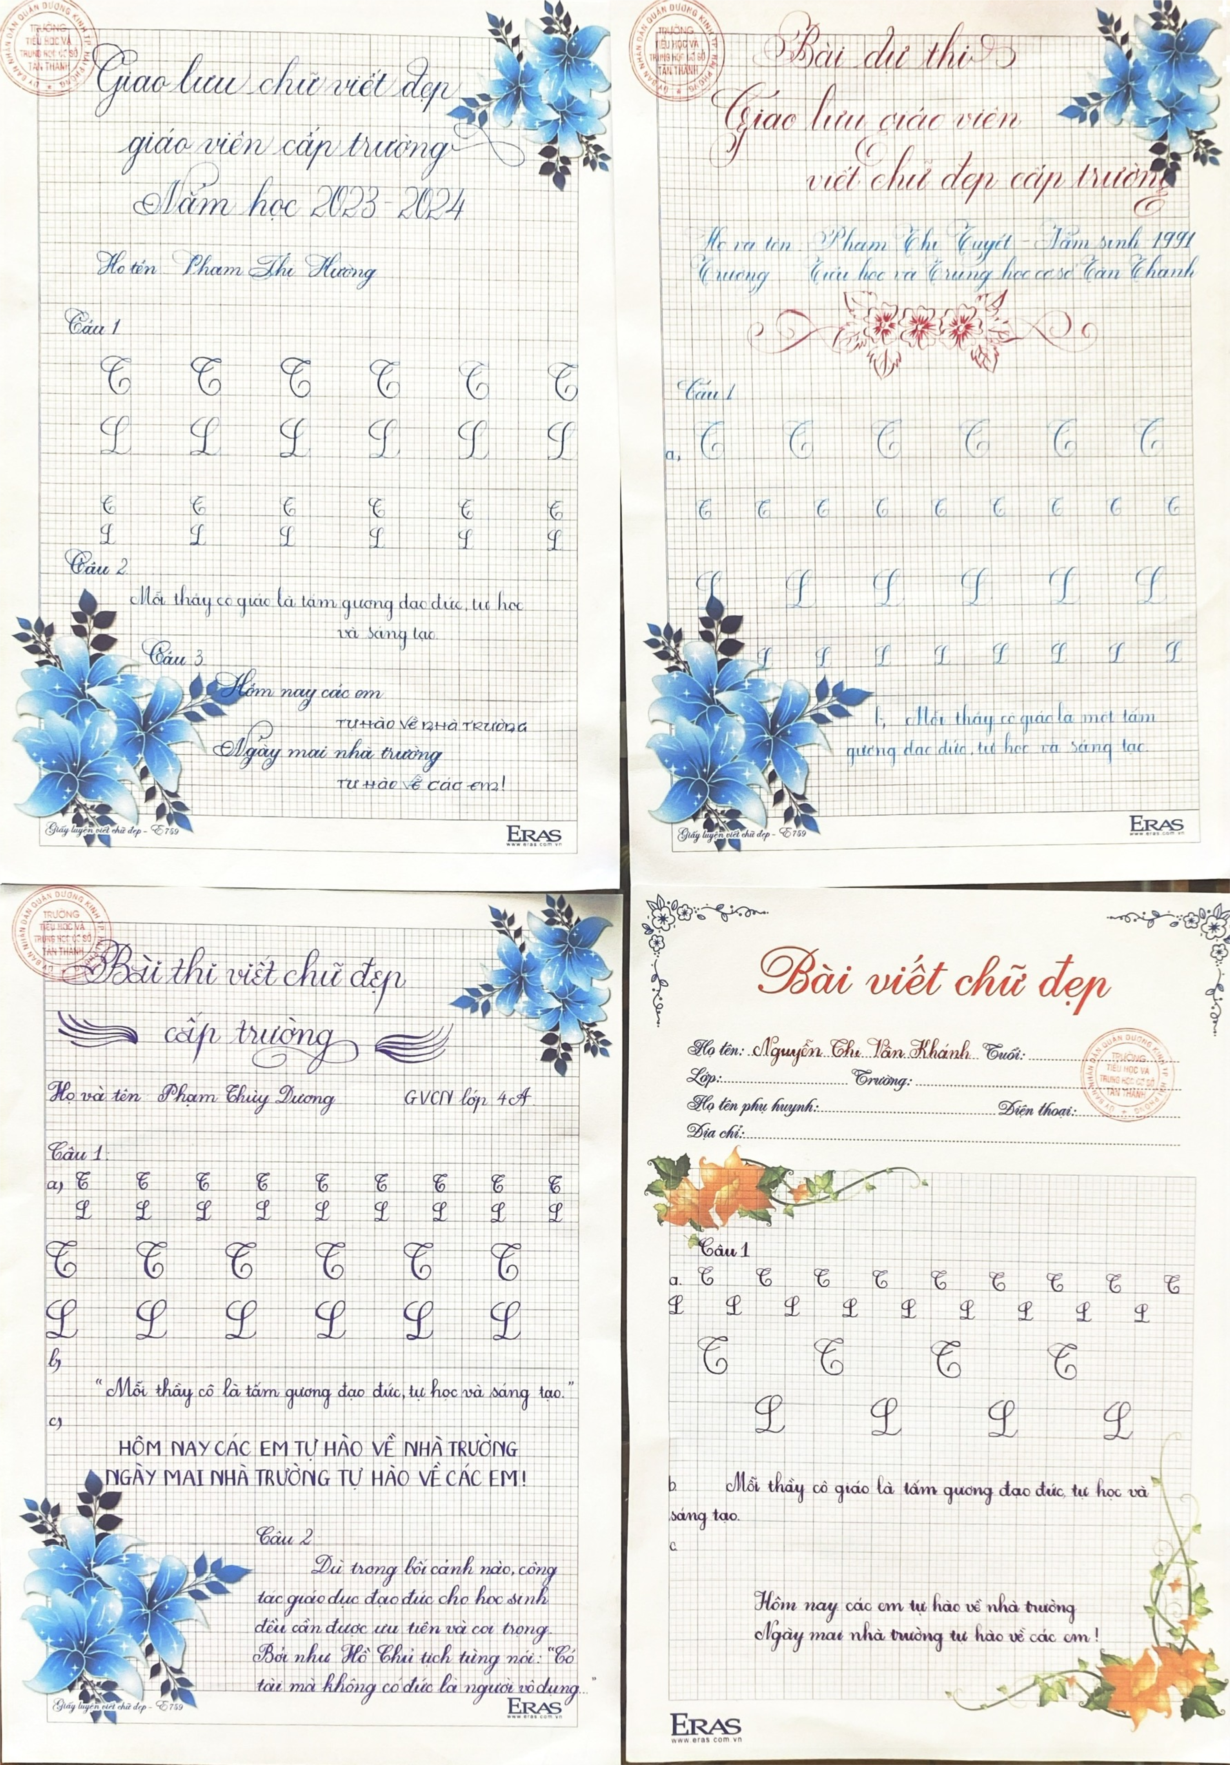 ỦY BAN NHÂN DÂN QUẬN DƯƠNG KINH TP. HẢI PHÒNG
TRƯỜNG
TIỂU HỌC VÀ
TRUNG HỌC CƠ SỞ
TÂN THÀNH
Giao lưu chữ viết đẹp
giáo viên cấp trường
Năm học 2023-2024
Họ tên Phạm Thị Hường
Câu 1
T T T T T T
L L L L L L
T T T T T T
L L L L L L
Câu 2
Mỗi thầy cô giáo là tấm gương đạo đức, tự học
và sáng tạo.
Câu 3
Hôm nay các em
TỰ HÀO VỀ NHÀ TRƯỜNG
Ngày mai nhà trường
TỰ HÀO VỀ CÁC EM!
Giấy luyện viết chữ đẹp - E759
ERAS
www.eras.com.vn
ỦY BAN NHÂN DÂN QUẬN DƯƠNG KINH TP. HẢI PHÒNG
TRƯỜNG
TIỂU HỌC VÀ
TRUNG HỌC CƠ SỞ
TÂN THÀNH
Bài dự thi
Giao lưu giáo viên
viết chữ đẹp cấp trường
Họ và tên: Phạm Thị Tuyết - Năm sinh 1991
Trường Tiểu học và Trung học cơ sở Tân Thành
Câu 1
a, T T T T T T
T T T T T T T T T
L L L L L L
L L L L L L L L
b, Mỗi thầy cô giáo là một tấm
gương đạo đức, tự học và sáng tạo.
Giấy luyện viết chữ đẹp - E759
ERAS
www.eras.com.vn
ỦY BAN NHÂN DÂN QUẬN DƯƠNG KINH TP. HẢI PHÒNG
TRƯỜNG
TIỂU HỌC VÀ
TRUNG HỌC CƠ SỞ
TÂN THÀNH
Bài thi viết chữ đẹp
cấp trường
Họ và tên Phạm Thùy Dương GVCN lớp 4A
Câu 1:
a) T T T T T T T T T
L L L L L L L L L
T T T T T T
L L L L L L
b)
"Mỗi thầy cô là tấm gương đạo đức, tự học và sáng tạo."
c)
HÔM NAY CÁC EM TỰ HÀO VỀ NHÀ TRƯỜNG
NGÀY MAI NHÀ TRƯỜNG TỰ HÀO VỀ CÁC EM!
Câu 2
Dù trong bối cảnh nào, công
tác giáo dục đạo đức cho học sinh
đều cần được ưu tiên và coi trọng.
Bởi như Hồ Chủ tịch từng nói: "Có
tài mà không có đức là người vô dụng..."
Giấy luyện viết chữ đẹp - E759
ERAS
www.eras.com.vn
Bài viết chữ đẹp
Họ tên: Nguyễn Thị Vân Khánh Tuổi:
Lớp: Trường:
Họ tên phụ huynh: Điện thoại:
Địa chỉ:
TRƯỜNG
TIỂU HỌC VÀ
TRUNG HỌC CƠ SỞ
TÂN THÀNH
Câu 1
a. T T T T T T T T T
L L L L L L L L L
T T T T
L L L L
b. Mỗi thầy cô giáo là tấm gương đạo đức, tự học và
sáng tạo.
c
Hôm nay các em tự hào về nhà trường
Ngày mai nhà trường tự hào về các em!
ERAS
www.eras.com.vn